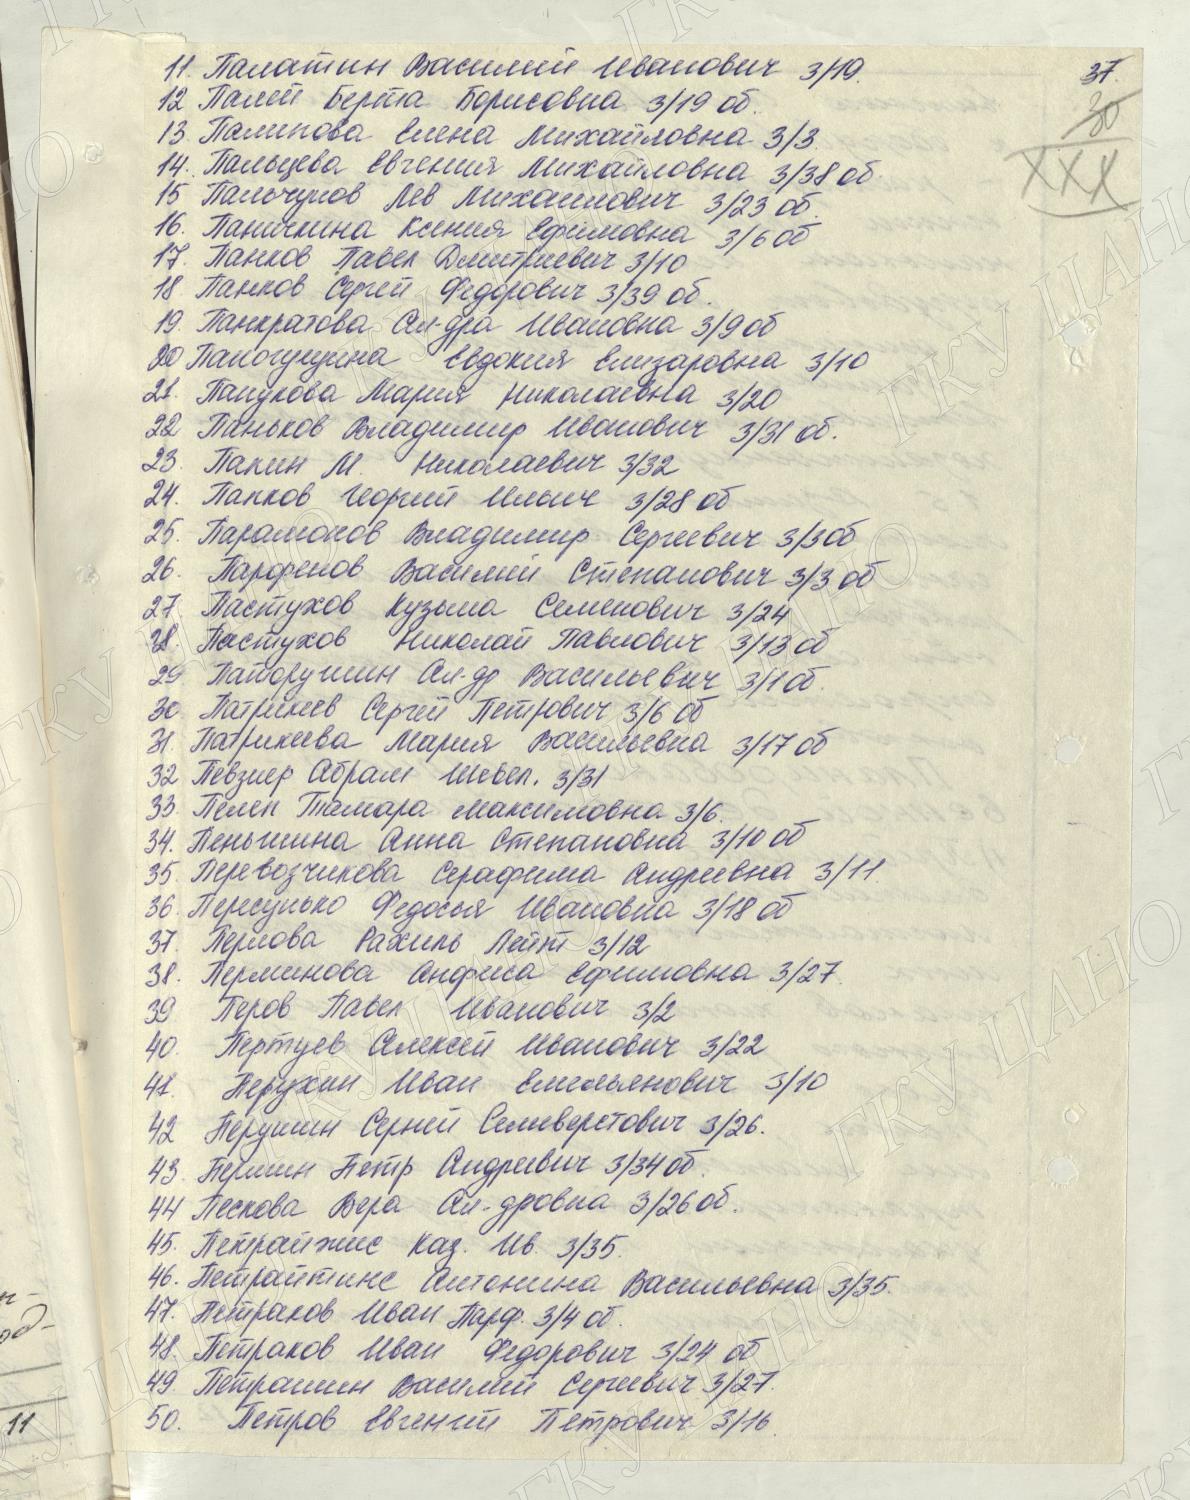 37.
30
XXX
11. Палатин Василий Иванович 3/19.
12 Палей Берта Борисовна 3/19 об.
13. Палипова Елена Михайловна 3/3
14. Пальцева Евгения Михайловна 3/38 об.
15 Пальчунов Лев Михайлович 3/23 об.
16. Паничкина Ксения Ефимовна 3/6 об
17. Панков Павел Дмитриевич 3/10
18 Панков Сергей Федорович 3/39 об.
19. Панкратова Ал-дра Ивановна 3/9 об
20 Евдокия Елизаровна 3/10
21. Мария Николаевна 3/20
22 Паньков Владимир Иванович 3/31 об.
23. Папин М. Николаевич 3/32
24. Папков Георгий Ильич 3/28 об
25. Парамонов Владимир Сергеевич 3/3 об
26. Парфенов Василий Степанович 3/3 об
27. Пастухов Кузьма Семенович 3/24
28. Пастухов Николай Павлович 3/13 об
29. Паторушин Ал-др Васильевич 3/1 об.
30. Патрикеев Сергей Петрович 3/6 об
31. Патрикеева Мария Васильевна 3/17 об
32 Певзнер Абрам Шевел. 3/31
33. Пелен Тамара Максимовна 3/6.
34. Пеньшина Анна Степановна 3/10 об
35. Перевозчикова Серафима Андреевна 3/11.
36. Пересунько Федосья Ивановна 3/18 об
37. Перлова Рахиль 3/12
38. Перминова Анфиса Ефимовна 3/27.
39 Перов Павел Иванович 3/2
40. Пертуев Алексей Иванович 3/22
41. Перухин Иван Емельянович 3/10
42 Перушин Сергей Селиверстович 3/26.
43. Першин Петр Андреевич 3/34 об.
44 Пескова Вера Ал-дровна 3/26 об.
45. Петрайжис Каз. Ив. 3/35.
46. Петрайтинс Антонина Васильевна 3/35.
47. Петраков Иван Парф. 3/4 об.
48. Петраков Иван Федорович 3/24 об
49. Петрашин Василий Сергеевич 3/27.
50. Петров Евгений Петрович 3/16.
11